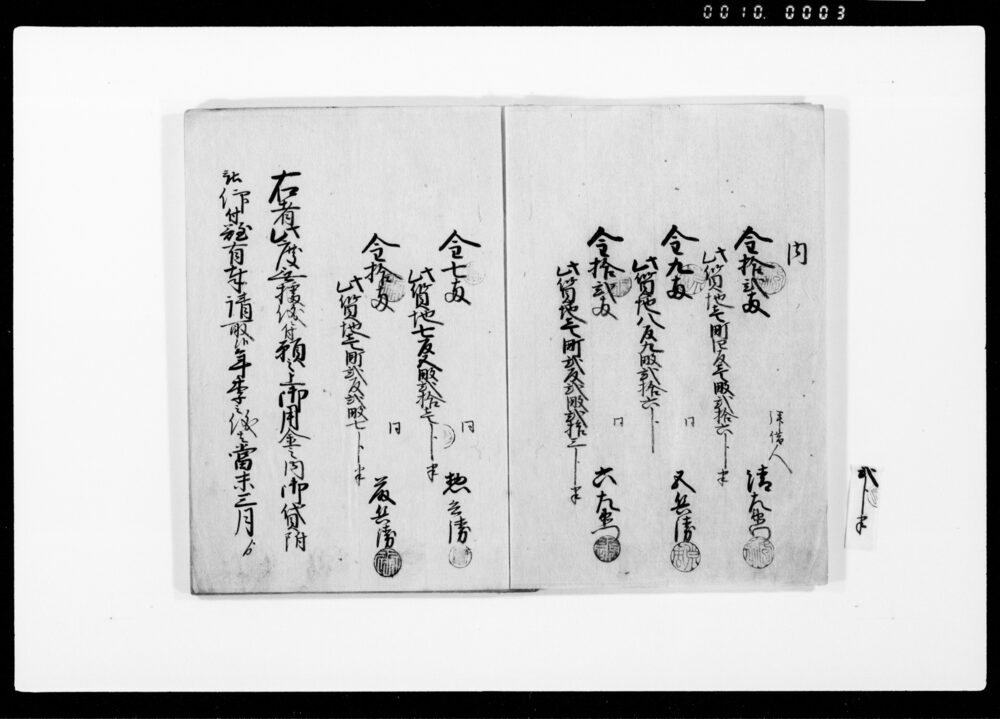 0010. 0003
内
金拾弐両
此質地壱町四反壱畝弐拾六歩半
拝借人
清左衛門
金九両
此質地八反九畝弐拾六歩
同
又兵衛
金拾弐両
此質地壱町弐反弐畝弐拾三歩半
同
六左衛門
金七両
此質地七反八畝弐拾七歩半
同
惣兵衛
金拾両
此質地壱町弐反弐畝七歩半
同
兵衛
右者此度無拠儀ニ付願之上御用金之内御貸附
被仰付難有奉請取候年季之儀者当未三月ゟ
弐歩半